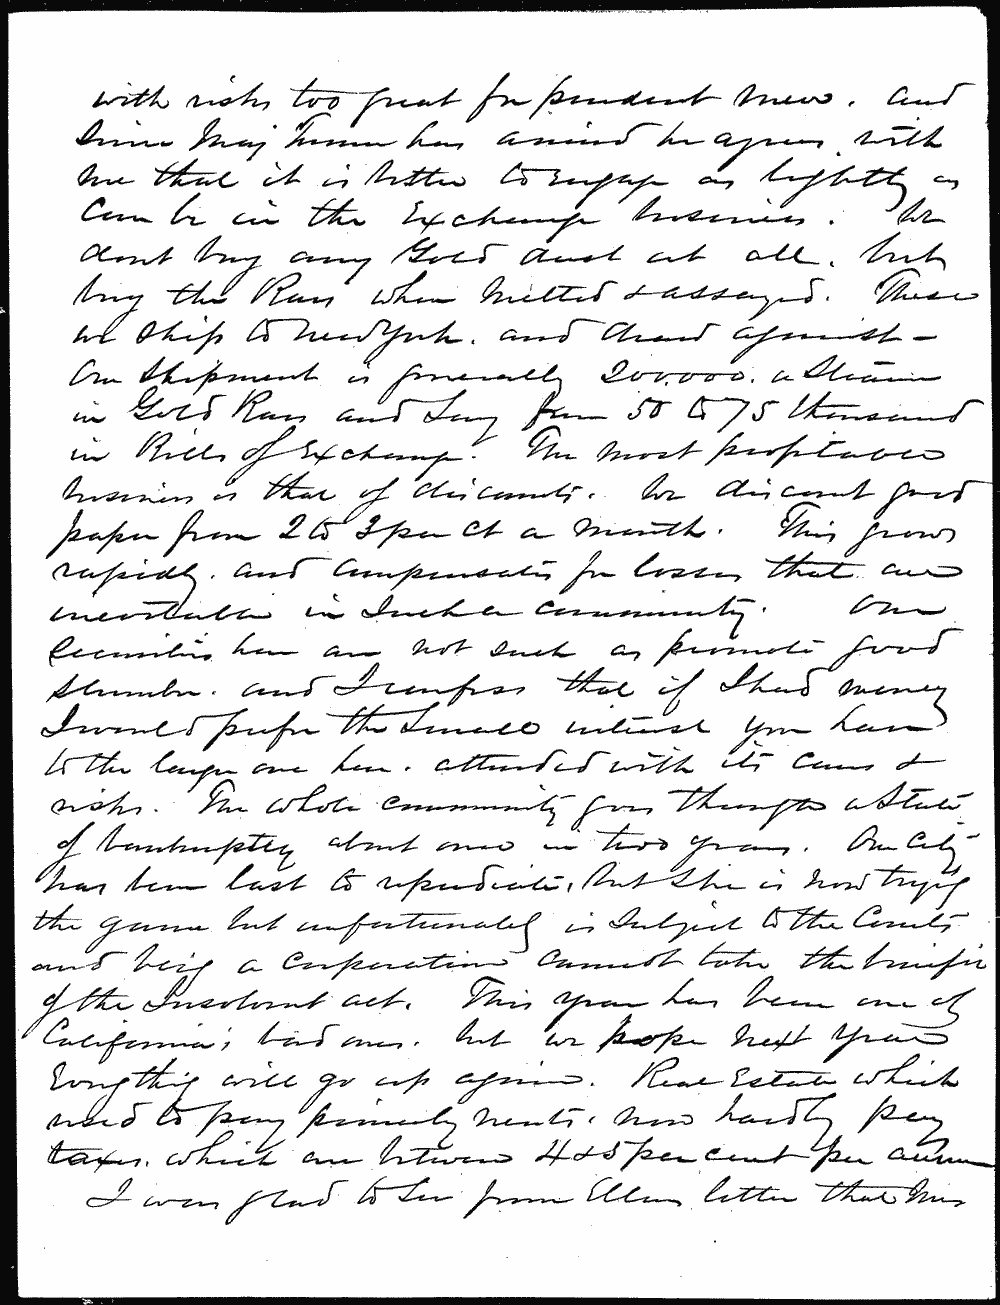 with risks too great for prudent men. and
Since Maj Turner has arrived he agrees with
me that it is better to engage as lightly as
can be in the Exchange business. We
dont buy any Gold dust at all. but
buy the Bars when melted & assayed. These
we ship to New York. and draw against –
Our Shipment is generally 200.000. a Steamer
in Gold Bars and Say from 50 to 75 thousand
in Bills of Exchange. The most profitable
business is that of discounts. We discount good
paper from 2 to 3 per ct a month. This grows
rapidly. and compensates for losses that are
inevitable in Such a community. Our
Securities here are not such as promote good
slumber. and I confess that if I had money
I would prefer the Small interest you have
to the large one here. attended with its cares &
risks. The whole community goes through a State
of bankruptcy about once in two years. Our City
has been last to repudiate, but she is now trying
the game but unfortunately is Subject to the Courts
and being a corporation cannot take the benefit
of the Insolvent act. This year has been one of
California's bad ones. but we hope next year
Everything will go up again. Real Estate which
used to pay princely rents. now hardly pay
taxes. which are between 4 & 5 per cent per annum
I was glad to See from Ellens letter that Mrs